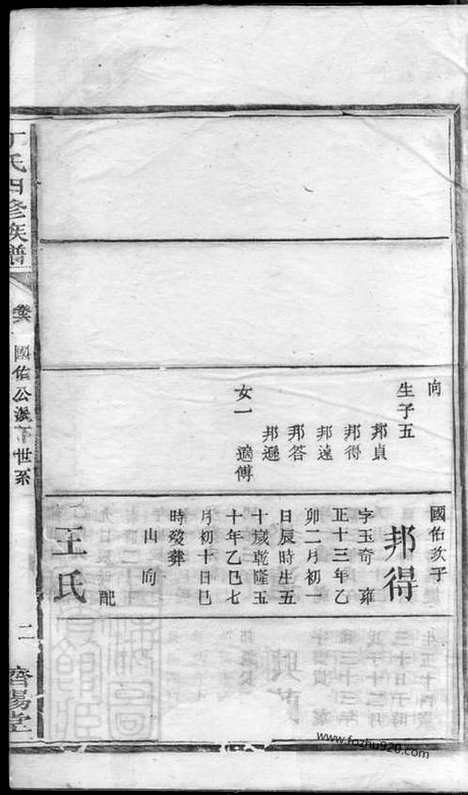 向
生子五
邦貞
邦得
邦遠
邦答
邦遜
女一 適傅
國佑次子
邦得
字玉奇 雍
正十三年乙
卯二月初一
日辰時生五
十歲乾隆五
十年乙巳七
月初十日巳
時歿葬
山向
配
王氏
丁氏四修族譜
卷
國佑公派下世系
二
濟陽堂
www.fozhu920.com